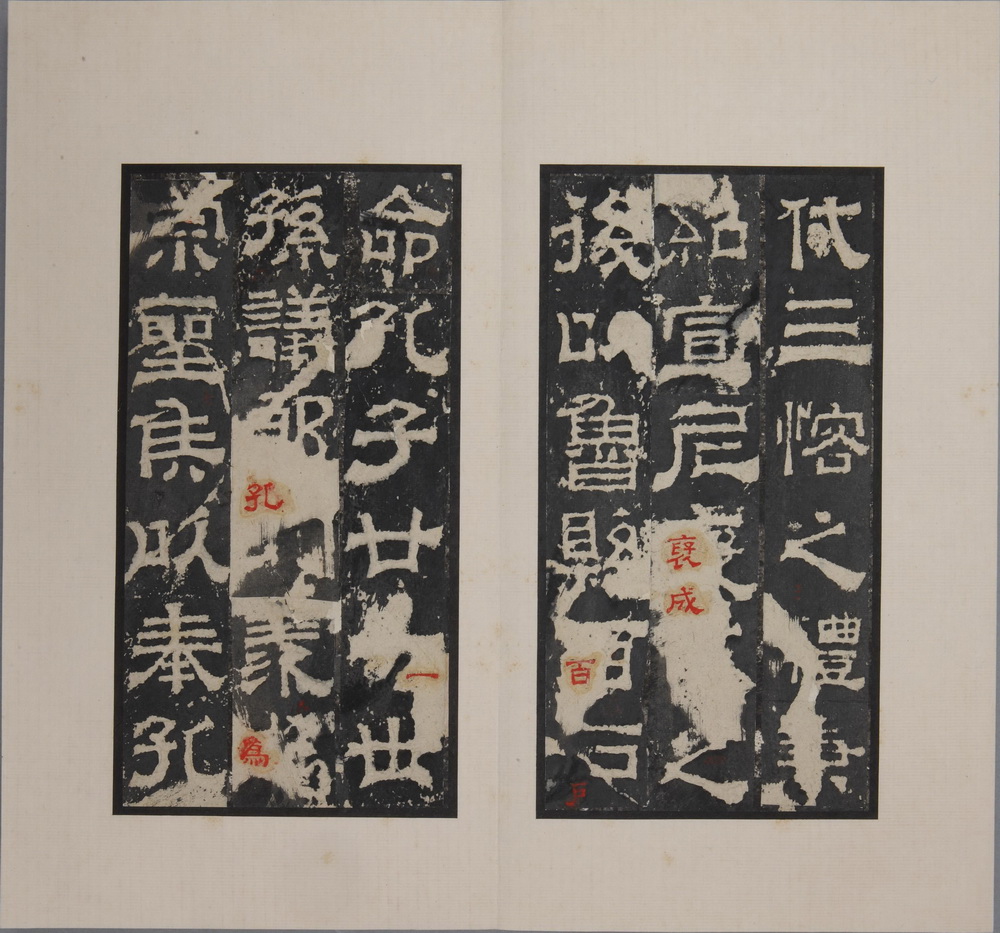 代三愘之禮兼
紹宣尼褒成之
後以魯縣百戶
命孔子廿一世
孫議郎孔羨為
崇聖侯以奉孔